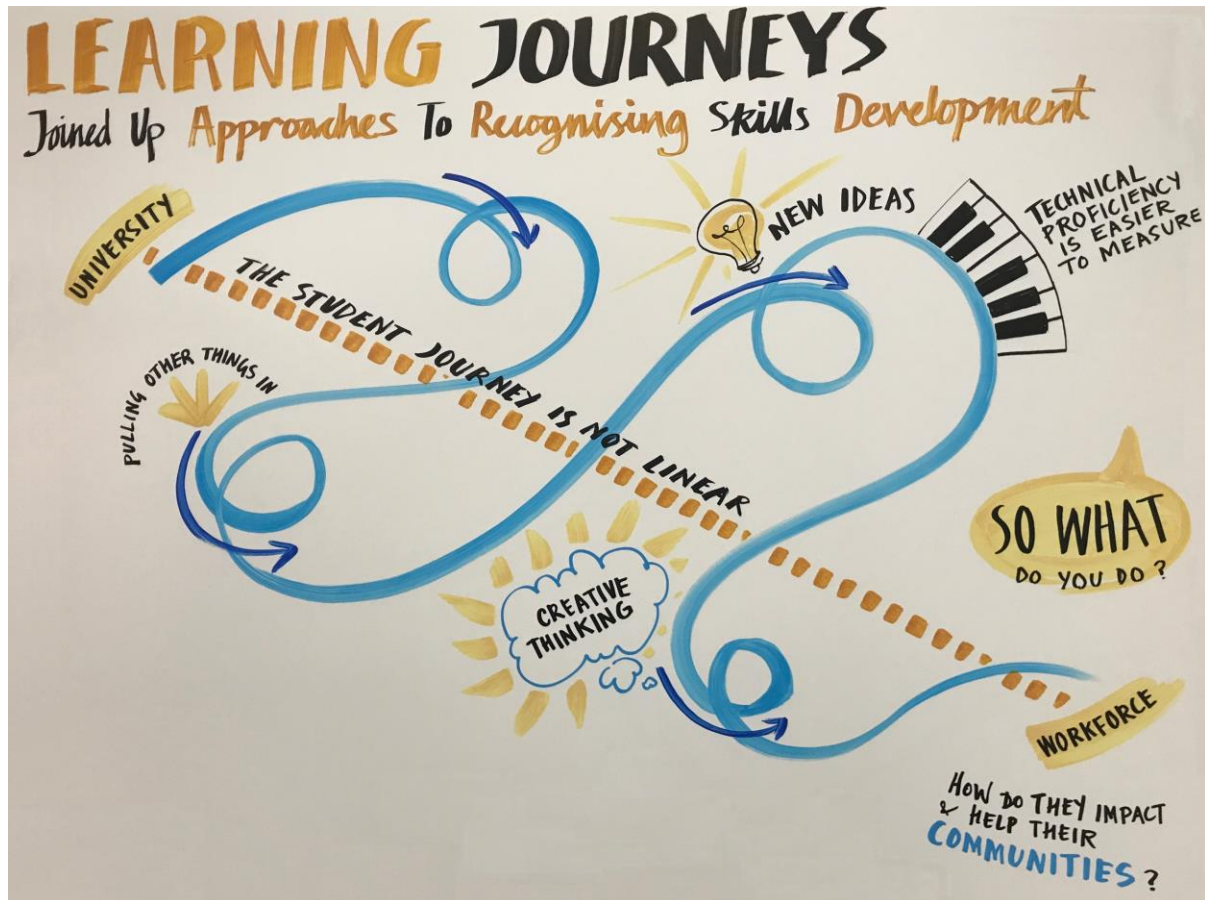 LEARNING JOURNEYS
Joined Up Approaches To Recognising Skills Development
UNIVERSITY
THE STUDENT JOURNEY IS NOT LINEAR
NEW IDEAS
TECHNICAL
PROFICIENCY
IS EASIER
TO MEASURE
PULLING OTHER THINGS IN
SO WHAT
DO YOU DO?
CREATIVE
THINKING
WORKFORCE
HOW DO THEY IMPACT
& HELP THEIR
COMMUNITIES?